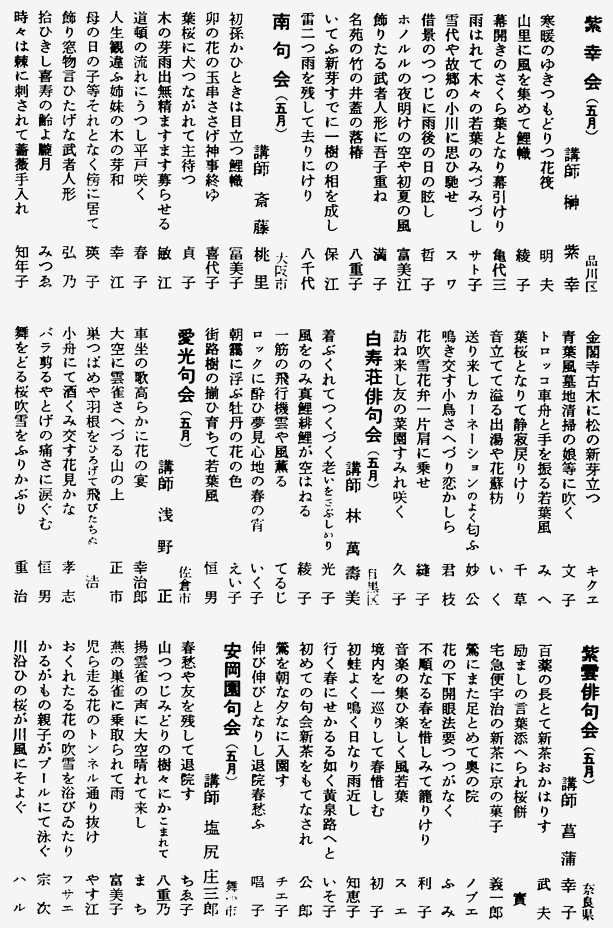 紫幸会（五月）
講師 榊 紫幸
品川区
寒暖のゆきつもどりつ花筏 明夫
山里に風を集めて鯉幟 綾子
幕開きのさくら葉となり幕引けり 亀代三
雨はれて木々の若葉のみづみづし サト子
雪代や故郷の小川に思ひ馳せ スワ
借景のつつじに雨後の日の眩し 哲子
ホノルルの夜明けの空や初夏の風 富美江
飾りたる武者人形に吾子重ね 満子
名苑の竹の井蓋の落椿 八重子
いてふ新芽すでに一樹の相を成し 保江
雷二つ雨を残して去りにけり 八千代
南句会（五月）
講師 斎藤 桃里
大阪市
初孫かひときは目立つ鯉幟 冨美子
卯の花の玉串ささげ神事終ゆ 喜代子
葉桜に犬つながれて主待つ 貞子
木の芽雨出無精ますます募らせる 敏江
道頓の流れにうつし平戸咲く 春子
人生観違ふ姉妹の木の芽和 幸江
母の日の子等それとなく傍に居て 瑛子
飾り窓物言ひたげな武者人形 弘乃
拾ひきし喜寿の齢よ朧月 みつゑ
時々は棘に刺されて薔薇手入れ 知年子
金閣寺古木に松の新芽立つ キクエ
青葉風墓地清掃の娘等に吹く 文子
トロッコ車舟と手を振る若葉風 みへ
葉桜となりて静寂戻りけり 千草
音立てて溢る出湯や花蘇枋 いく
送り来しカーネーションのよく匂ふ 妙公
鳴き交す小鳥さへづり恋かしら 君枝
花吹雪花弁一片肩に乗せ 縫子
訪ね来し友の菜園すみれ咲く 久子
白寿荘俳句会（五月）
講師 林 萬壽美
目黒区
着ぶくれてつくづく老いをさぶしめり 光子
風をのみ真鯉緋鯉が空はねる 綾子
一筋の飛行機雲や風薫る てるじ
ロックに酔ひ夢見心地の春の宵 いく子
朝靄に浮ぶ牡丹の花の色 えい子
街路樹の揃ひ育ちて若葉風 恒男
愛光句会（五月）
講師 浅野 正
佐倉市
車坐の歌高らかに花の宴 幸治郎
大空に雲雀さへづる山の上 正市
巣つばめや羽根をひろげて飛びたちぬ 浩
小舟にて酒くみ交す花見かな 孝志
バラ剪るやとげの痛さに涙ぐむ 恒男
舞をどる桜吹雪をふりかぶり 重治
紫雲俳句会（五月）
講師 菖蒲 幸子
奈良県
百薬の長とて新茶おかはりす 武夫
励ましの言葉添へられ桜餅 實
宅急便宇治の新茶に京の菓子 義一郎
鶯にまた足とめて奥の院 ノブエ
花の下開眼法要つつがなく ふみ
不順なる春を惜しみて籠りけり 利子
音楽の集ひ楽しく風若葉 スエ
境内を一巡りして春惜しむ 初子
初蛙よく鳴く日なり雨近し 知恵子
行く春にせかるる如く黄泉路へと いそ子
初めての句会新茶をもてなされ 公郎
鶯を朝な夕なに入園す チエ子
伸び伸びとなりし退院春愁ふ 唱子
安岡園句会（五月）
講師 塩尻 庄三郎
春愁や友を残して退院す ちゑ子
山つつじみどりの樹々にかこまれて 八重乃
揚雲雀の声に大空晴れて来し まち
燕の巣雀に乗取られて雨 富美子
児ら走る花のトンネル通り抜け やす江
おくれたる花の吹雪を浴びゐたり フサエ
かるがもの親子がプールにて泳ぐ 宗次
川沿ひの桜が川風にそよぐ ハル